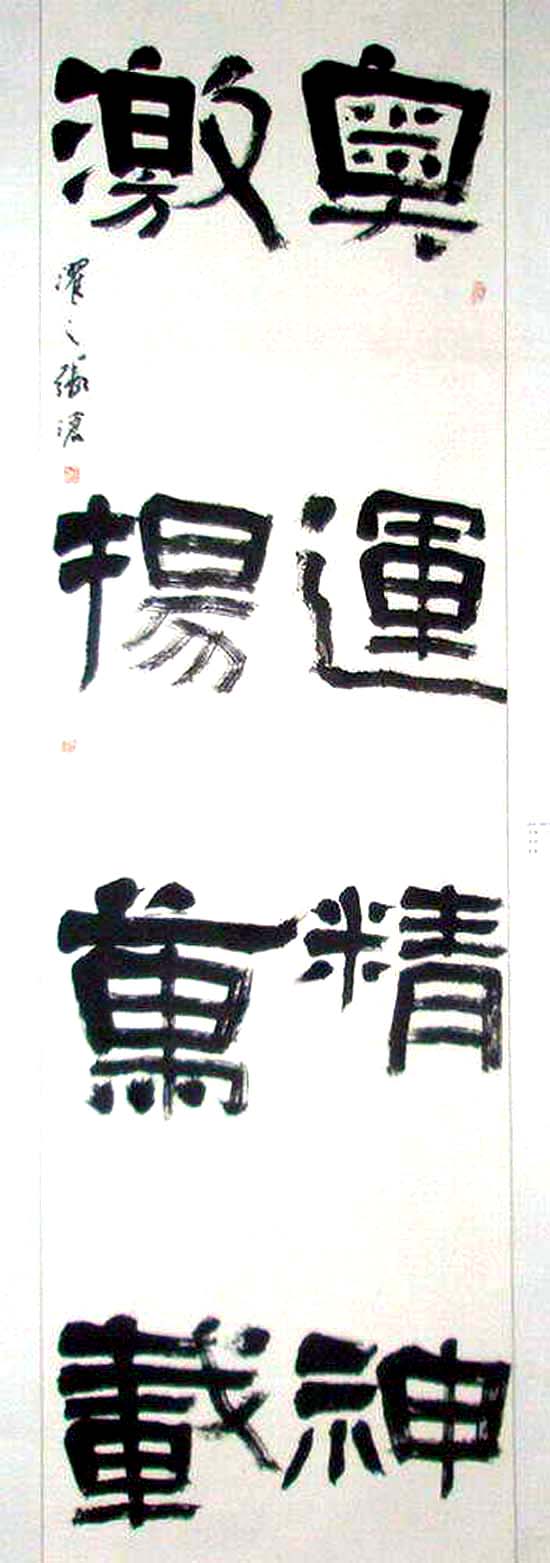 奧運精神
激揚萬載
濯之張濬